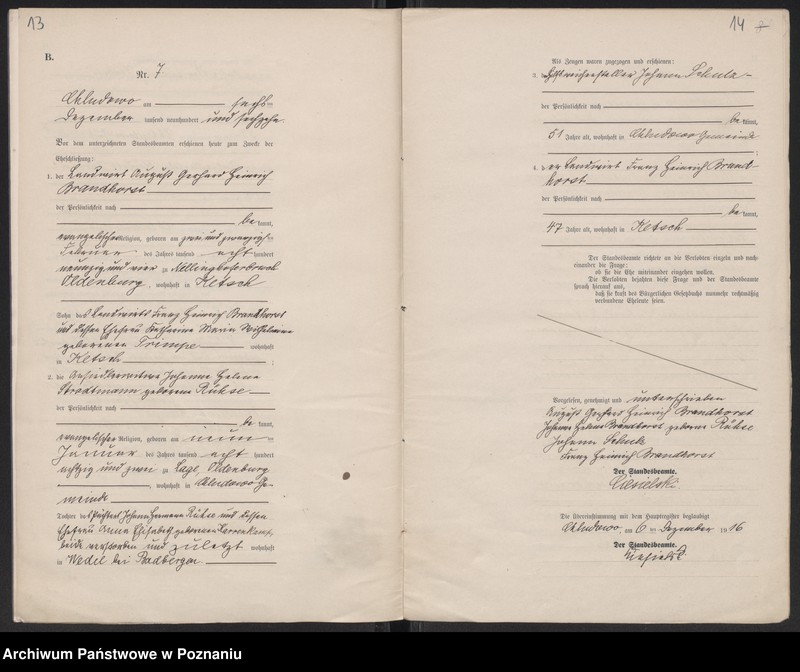 13
B.
Nr. 7
Chludowo am sechs ten
Dezember tausend neunhundert und sechzehn.
Vor dem unterzeichneten Standesbeamten erschienen heute zum Zwecke der
Eheschließung:
1. der Landwirt August Gerhard Heinrich
Brandhorst
der Persönlichkeit nach
be kannt,
evangelischer Religion, geboren am zwei und zwanzigsten
Februar des Jahres tausend acht hundert
neunzig und vier zu
Oldenburg, wohnhaft in Ketsch
Sohn des Landwirts Franz Heinrich Brandhorst
und dessen Ehefrau Katharina Maria Wilhelmine
geborenen Trimpe wohnhaft
in Ketsch ;
2. die Ansiedlerwitwe Johanne Helene
Strodtmann geborene Rühse
der Persönlichkeit nach
be kannt,
evangelischer Religion, geboren am neun ten
Januar des Jahres tausend acht hundert
achtzig und zwei zu Lage, Oldenburg
, wohnhaft in Chludowo Ge-
meinde
Tochter des Pächters Johann Hermann Rühse und dessen
Ehefrau Anna Elisabeth geborenen
beide verstorben und zuletzt wohnhaft
in Wedel bei Badbergen.
14
Als Zeugen waren zugezogen und erschienen:
3. der Johann Schulz
der Persönlichkeit nach
be kannt,
51 Jahre alt, wohnhaft in Chludowo Gemeinde
;
4. der Landwirt Franz Heinrich Brand-
horst
der Persönlichkeit nach
be kannt,
47 Jahre alt, wohnhaft in Ketsch
Der Standesbeamte richtete an die Verlobten einzeln und nach-
einander die Frage:
ob sie die Ehe miteinander eingehen wollen.
Die Verlobten bejahten diese Frage und der Standesbeamte
sprach hierauf aus,
daß sie kraft des Bürgerlichen Gesetzbuchs nunmehr rechtmäßig
verbundene Eheleute seien.
Vorgelesen, genehmigt und unterschrieben
August Gerhard Heinrich Brandhorst
Johanne Helene Brandhorst geborene Rühse
Johann Schulz
Franz Heinrich Brandhorst
Der Standesbeamte.
Ciesielski.
Die Übereinstimmung mit dem Hauptregister beglaubigt
Chludowo, am 6 ten Dezember 19 16
Der Standesbeamte.
Ciesielski
Archiwum Państwowe w Poznaniu